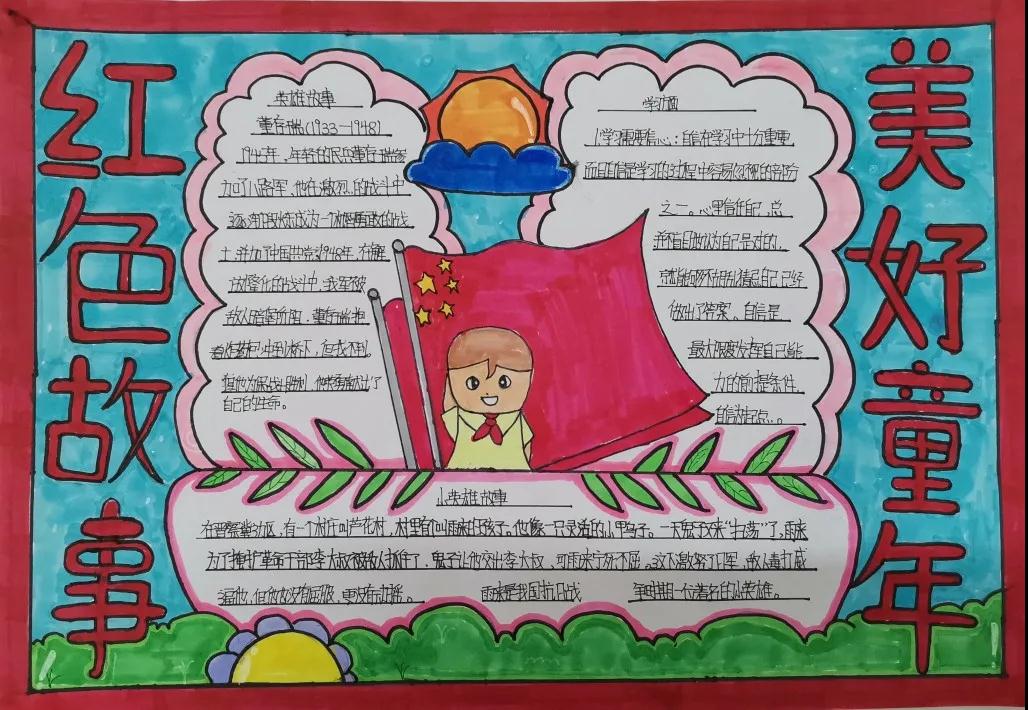 红色故事
英雄故事
董存瑞(1933—1948)
1945年,年轻的民兵董存瑞参
加了八路军,他在激烈的战斗中
逐渐锻炼成为一个机智勇敢的战
士,并加了中国共党,1948年,在解
放隆化的战斗中,我军被
敌人暗堡所阻,董存瑞抱
着炸药包冲到桥下,但找不到
但他为了战斗胜利,他英勇献出了
自己的生命。
学习方面
1.学习需要信心:自信在学习中十分重要,
而且自信是学习的过程中容易忽视的部分
之一。心里信任自己,总
并盲目地认为自己是对的,
就能够不用别猜忌自己已经
做出了答案。自信是
最大限度发挥自己能
力的前提条件。
自信为起点。
小英雄故事
在晋察冀边区,有一个村庄叫芦花村,村里有个叫雨来的孩子。他像一只灵活的小鸭子。一天鬼子又来“扫荡”了,雨来
为了掩护革命干部李大叔被敌人抓住了,鬼子让他交出李大叔,可雨来宁死不屈。这下激怒了日军,敌人毒打威
逼他,但他也没有屈服,更没有动摇。 雨来是我国抗日战 争时期一位著名的小英雄。
美好童年